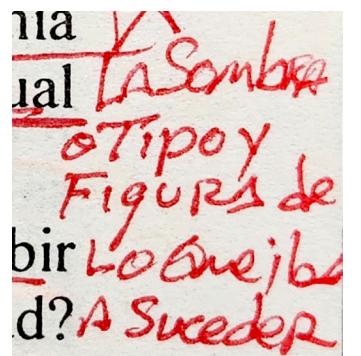 nía
ual La Sombra
o Tipo y
Figura de
bir Lo Que iba
d? A Suceder